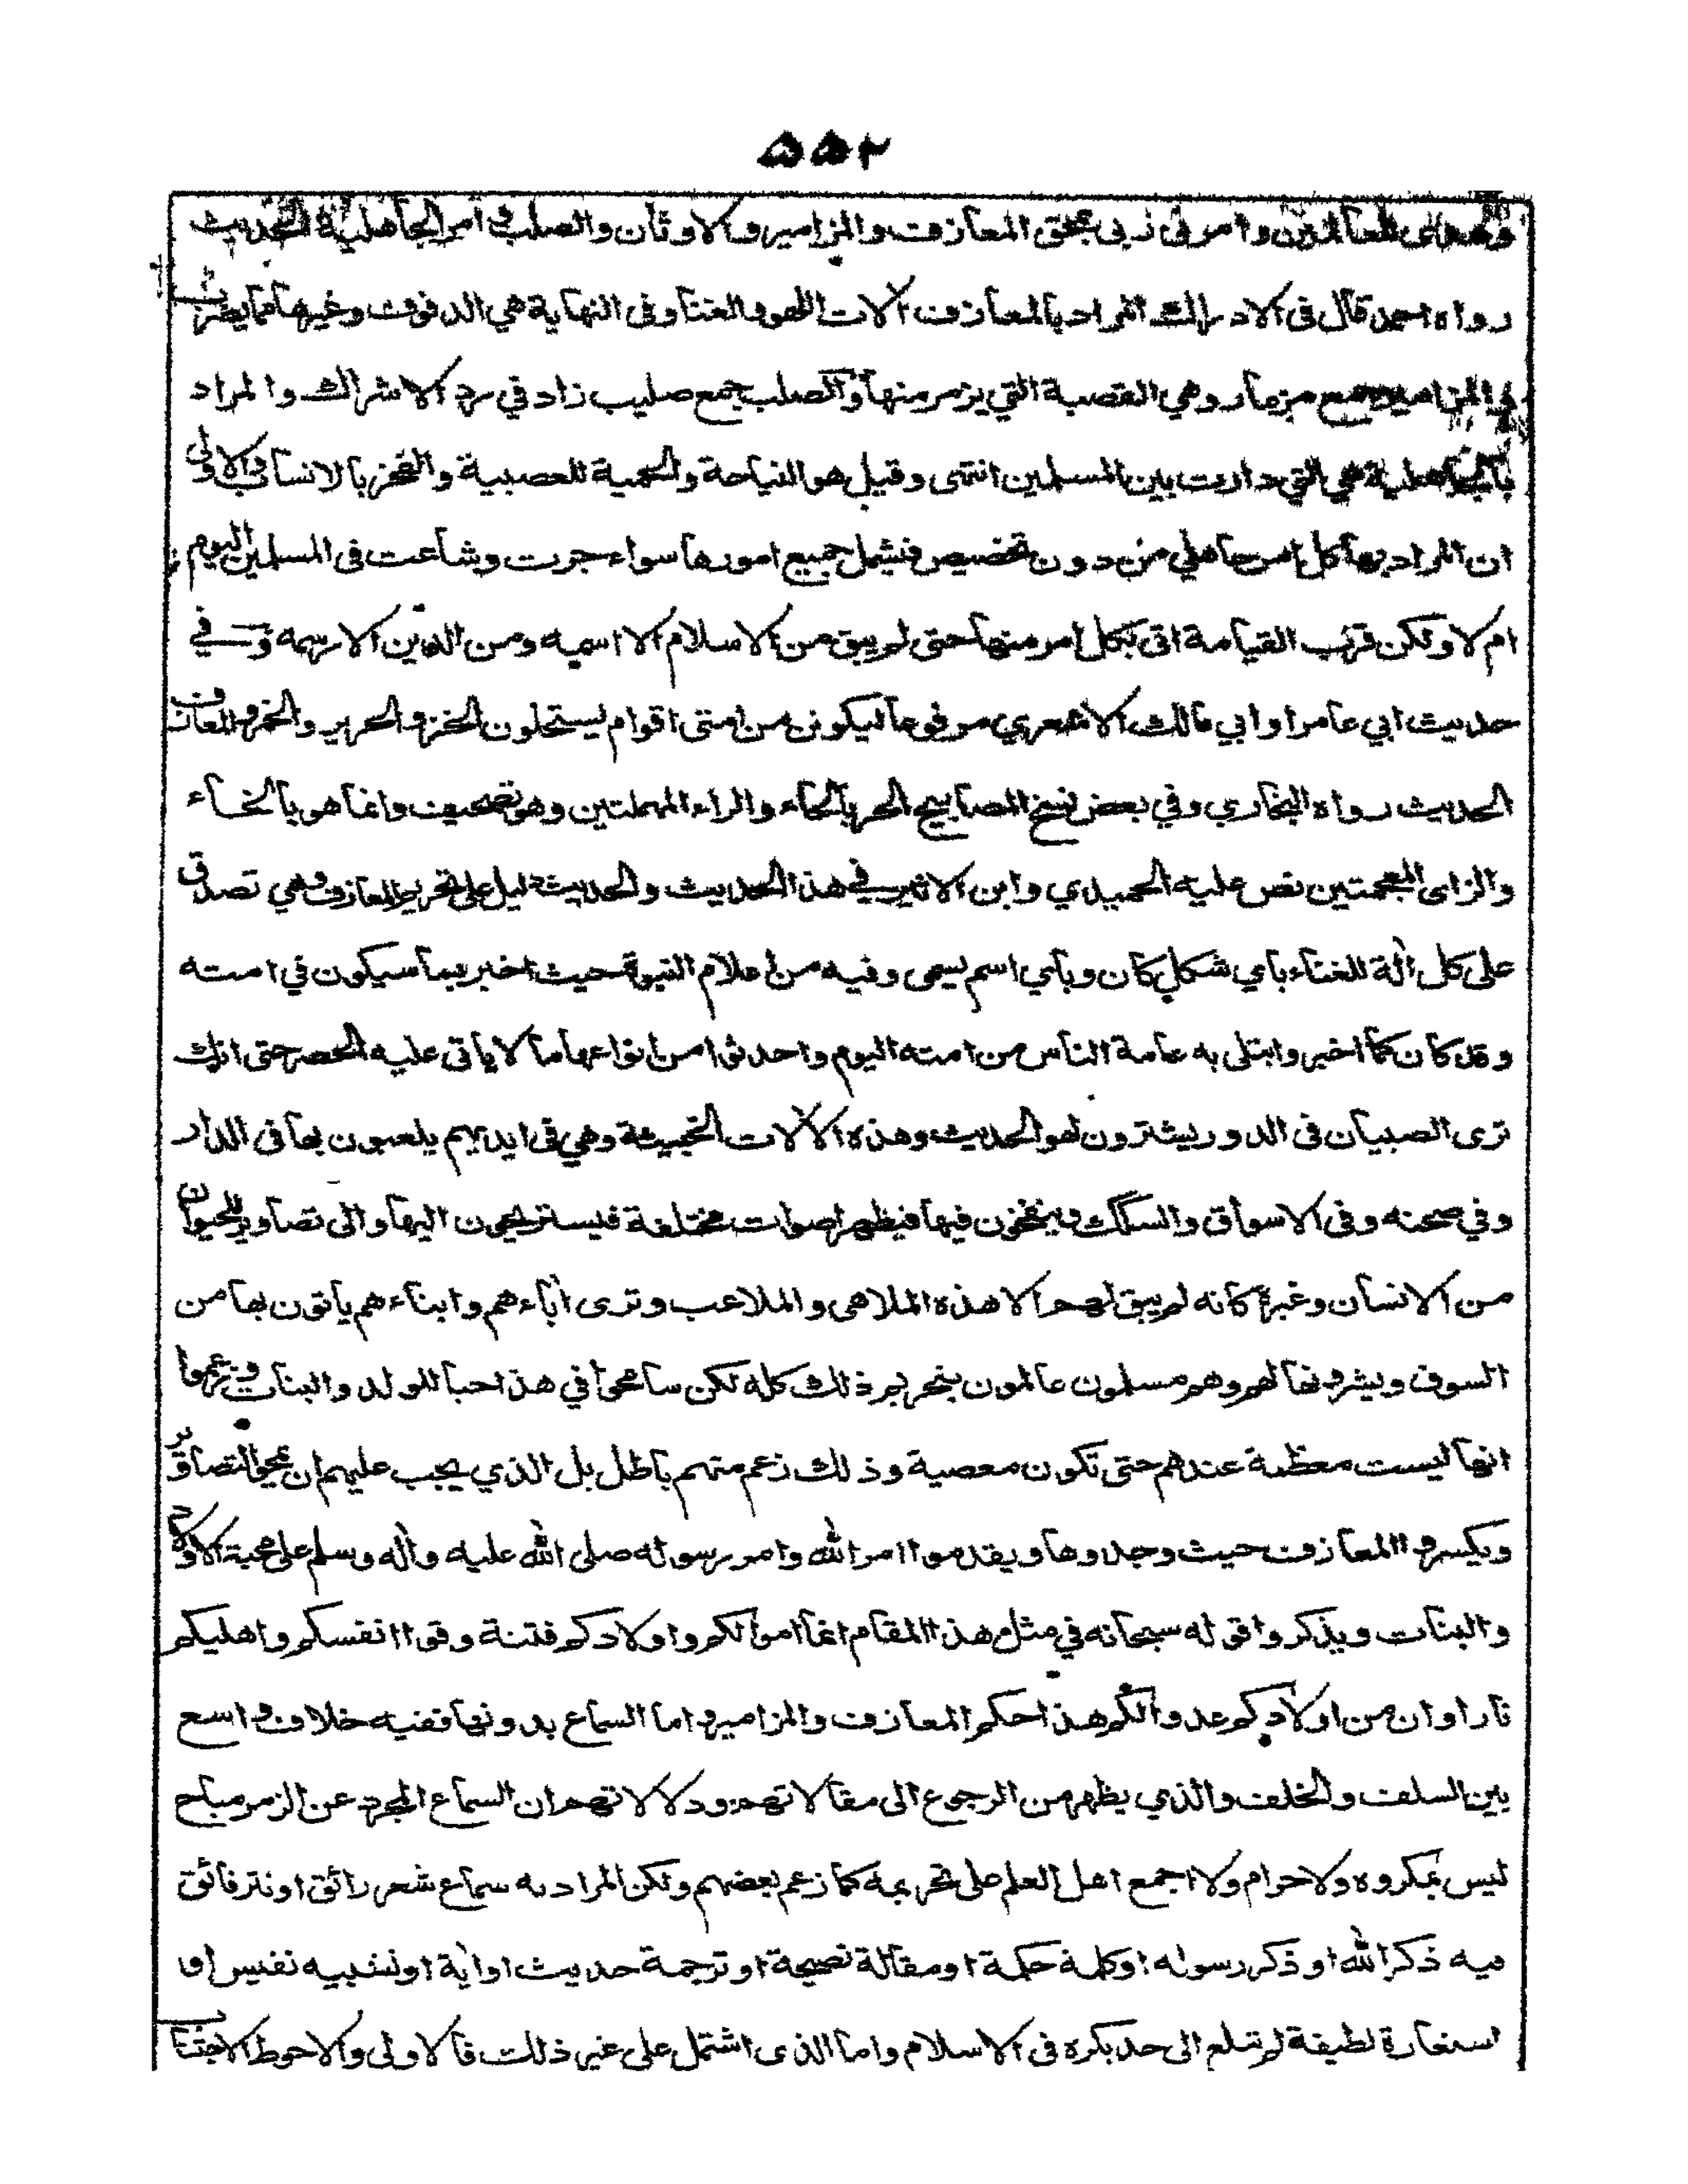 ۵۵۲
وهدى للعالمين وامرني ربي بمحق المعازف والمزامير والاوثان والصلب وامر الجاهلية الحديث
رواه احمد قال في الادراك المراد بالمعازف الات اللهو والغناء وفي النهاية هي الدفوف وغيرها مما يضرب
والمزامير جمع مزمار وهي القصبة التي يزمر منها والصلب جمع صليب زاد في رد الاشراك والمراد
بالجاهلية هي التي دارت بين المسلمين انتهى وقيل هو النياحة والحمية للعصبية والفخر بالانساب والاولى
ان المراد بها كل امر جاهلي من دون تخصيص فيشمل جميع امورها سواء جرت وشاعت في المسلمين اليوم
ام لا ولكن قرب القيامة اتى بكل امر منها حتى لم يبق من الاسلام الا اسمه ومن الدين الا رسمه و في
حديث ابي عامر او ابي مالك الاشعري مرفوعا ليكونن من امتي اقوام يستحلون الخز والحرير والخمر والمعازف
الحديث رواه البخاري وفي بعض نسخ المصابيح الحر بالحاء والراء المهملتين وهو تصحيف وانما هو بالخاء
والزاي المعجمتين نص عليه الحميدي وابن الاثير في هذا الحديث والحديث دليل على تحريم المعازف وهي تصدق
على كل الة للغناء باي شكل كان وباي اسم يسمى وفيه من اعلام النبوة حيث اخبر بما سيكون في امته
وقد كان كما اخبر وابتلى به عامة الناس من امته اليوم واحدثوا من انواعها ما لا ياتي عليه الحصر حتى انك
ترى الصبيان في الدور يشترون لهو الحديث وهذه الالات الخبيثة وهي في ايديهم يلعبون بها في الدار
وفي صحنه وفي الاسواق والسكك وينفخون فيها فيظهر اصوات مختلفة فيستريحون اليها والى تصاوير الحيوان
من الانسان وغيره كانه لم يبق لهم الا هذه الملاهي والملاعب وترى اباءهم وابناءهم ياتون بها من
السوق ويشرونها لهم وهم مسلمون عالمون بتحريم ذلك كله لكن سامحوا في هذا حبا للولد والبنات وزعموا
انها ليست معظمة عندهم حتى تكون معصية وذلك زعم منهم باطل بل الذي يجب عليهم ان يمحوا التصاوير
ويكسروا المعازف حيث وجدوها ويقدموا امر الله وامر رسوله صلى الله عليه واله وسلم على محبة الاولاد
والبنات ويذكروا قوله سبحانه في مثل هذا المقام انما اموالكم واولادكم فتنة وقوا انفسكم واهليكم
نارا وان من اولادكم عدوا لكم هذا حكم المعازف والمزامير واما السماع بدونها ففيه خلاف واسع
بين السلف والخلف والذي يظهر من الرجوع الى مقالاتهم ودلالاتهم ان السماع المجرد عن الزمر مباح
ليس بمكروه ولا حرام ولا اجمع اهل العلم على تحريمه كما زعم بعضهم ولكن المراد به سماع شعر رائق او نثر فائق
فيه ذكر الله او ذكر رسوله او كلمة حكمة او مقالة نصيحة او ترجمة حديث او اية او تشبيه نفيس او
استعارة لطيفة لم تبلغ الى حد يكره في الاسلام واما الذي اشتمل على غير ذلك فالاولى والاحوط الاجتناب